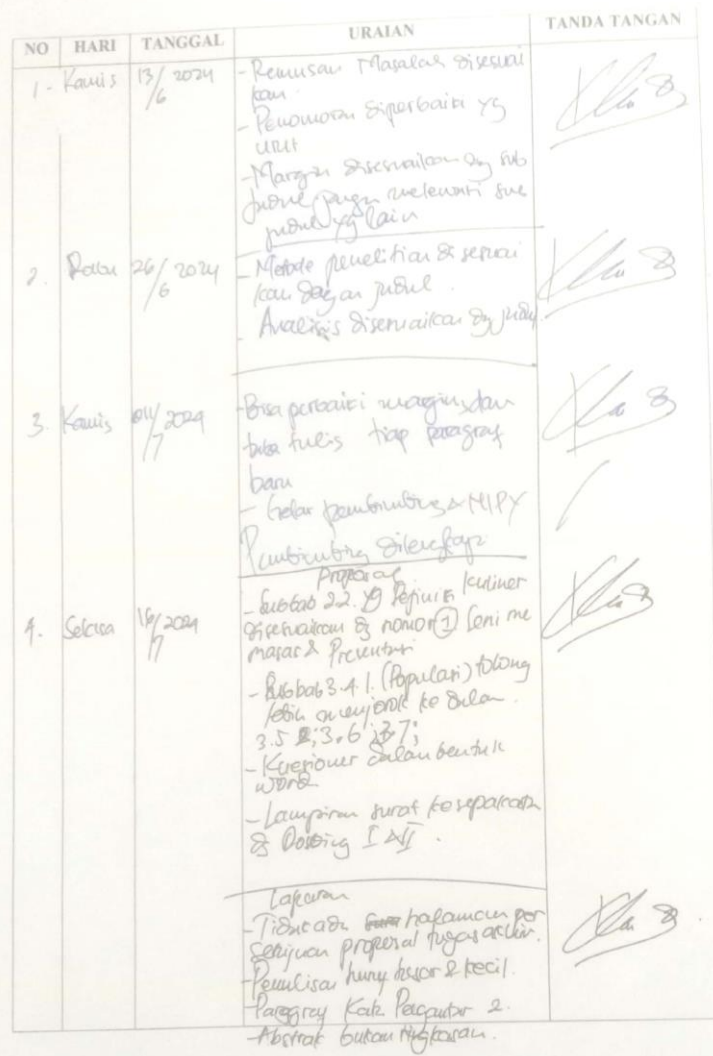 NO HARI TANGGAL URAIAN TANDA TANGAN
1. Kamis 13/6 2024 - Rumusan Masalah disesuai
kan.
- Penomoran diperbaiki yg
urut
- Margin disesuaikan dg sub
judul jangan melewati sub
judul yg lain
2. Rabu 26/6 2024 - Metode penelitian disesuai
kan dengan judul.
- Analisis disesuaikan dg judul
3. Kamis 04/7 2024 - Bisa perbaiki margins dan
tulis tiap paragraf
baru
- Gelar pembimbing & NIPY
Pembimbing dilengkapi
Proposal
4. Selasa 16/7 2024 - Subbab 2.2. yg Definisi kuliner
disesuaikan dg nomor 1 Seni me
masak &
- Subbab 3.4.1. (Populasi) tolong
lebih menjorok ke dalam.
3.5 ; 3.6 ; 3.7 ;
- Kuesioner dalam bentuk
word
- Lampiran surat kesepakatan
dg Dosbing I & II.
Laporan
- Tidak ada halaman per
setujuan proposal tugas akhir.
- Penulisan huruf besar & kecil.
- Paragraf Kata Pengantar 2.
- Abstrak bukan ringkasan.